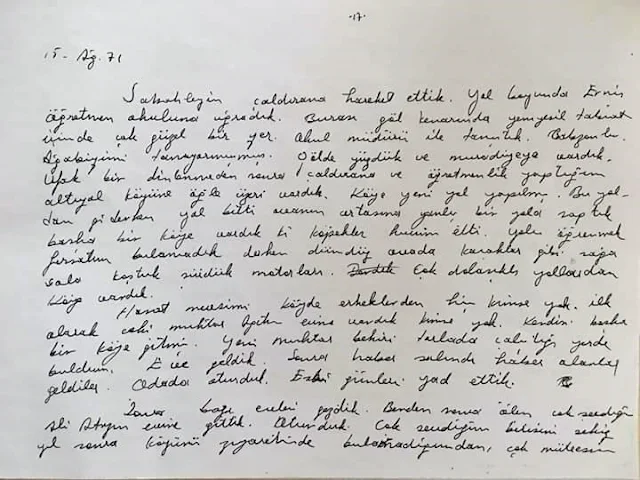 -17-
15 - Ağ. 71
Sabahleyin çaldırana hareket ettik. Yol boyunda Ernis
öğretmen okuluna uğradık. Burası göl kenarında yemyeşil tabiat
içinde çok güzel bir yer. Okul müdürü ile tanıştık.
Ağabiyimi tanıyormuş. Gölde yüzdük ve muradiyeye vardık.
Ufak bir dinlenmeden sonra çaldırana ve öğretmenlik yaptığım
köyüne öğle üzeri vardık. Köye yeni yol yapılmış. Bu yol-
dan giderken yol bitti ovanın ortasına yanlış bir yola saptık
başka bir köye vardık ki köpekler hücum etti. Yolu öğrenmek
fırsatını bulamadık derken ovada gibi sağa
sola koştuk motorları. Çok dolaşık yollardan
köye vardık.
mevsimi köyde erkeklerden hiç kimse yok. ilk
olarak eski muhtar evine vardık kimse yok. Kendisi başka
bir köye gitmiş. Yeni muhtar bekiri tarlada çalıştığı yerde
buldum. Eve geldik. Sonra haber salındı haber alanlar
geldiler. Odada oturduk. Eski günleri yad ettik.
Sonra bazı evleri gezdik. Benden sonra ölen çok sevdiğim
Ali evine gittik. Oturduk. Çok sevdiğim birisini sekiz
yıl sonra köyünü ziyaretimde bulamadığımdan, çok müteessir